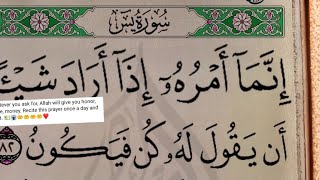 سُورَةُ يسٓ
إِنَّمَآ أَمْرُهُۥٓ إِذَآ أَرَادَ شَيْـًٔا
ever you ask for, Allah will give you honor,
e, money. Recite this prayer once a day and
أَن يَقُولَ لَهُۥ كُن فَيَكُونُ ٨٢